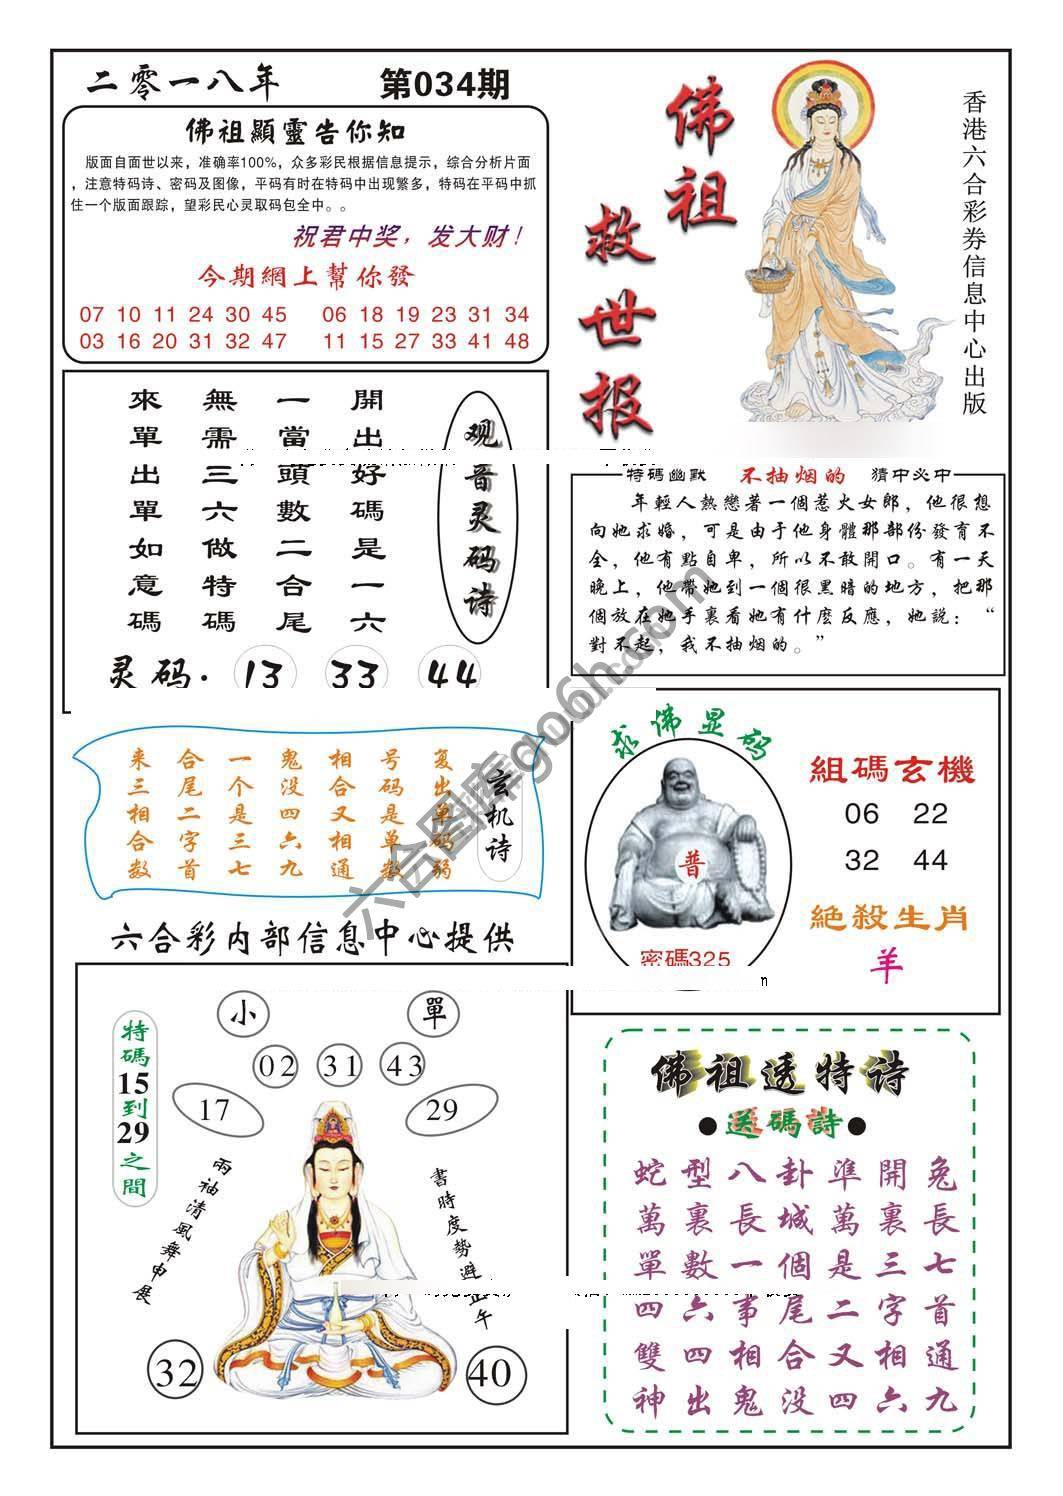 二零一八年
第034期
佛祖顯靈告你知
版面自面世以来，准确率100%，众多彩民根据信息提示，综合分析片面
，注意特码诗、密码及图像，平码有时在特码中出现繁多，特码在平码中抓
住一个版面跟踪，望彩民心灵取码包全中。。
祝君中奖，发大财！
今期網上幫你發
07 10 11 24 30 45 06 18 19 23 31 34
03 16 20 31 32 47 11 15 27 33 41 48
佛祖
救世报
香港六合彩券信息中心出版
观音灵码诗
開出好碼是一六
一當頭數二合尾
無需三六做特碼
來單出單如意碼
灵码. 13 33 44
特碼幽默 不抽烟的 猜中必中
年輕人熱戀著一個惹火女郎，他很想
向她求婚，可是由于他身體那部份發育不
全，他有點自卑，所以不敢開口。有一天
晚上，他帶她到一個很黑暗的地方，把那
個放在她手裏看她有什麽反應，她説：“
對不起，我不抽烟的。”
玄机诗
复出单码弱
号码是单数
相合又相通
鬼没四六九
一个是三七
合尾二字首
来三相合数
求佛显码
普
密碼325
組碼玄機
06 22
32 44
絕殺生肖
羊
六合彩内部信息中心提供
小 單
02 31 43
17 29
特碼15到29之間
兩袖清風舞申展
書時度勢避正午
32 40
佛祖透特诗
●送碼詩●
蛇型八卦準開兔
萬裏長城萬裏長
單數一個是三七
四六事尾二字首
雙四相合又相通
神出鬼没四六九
六合图库go6h.com